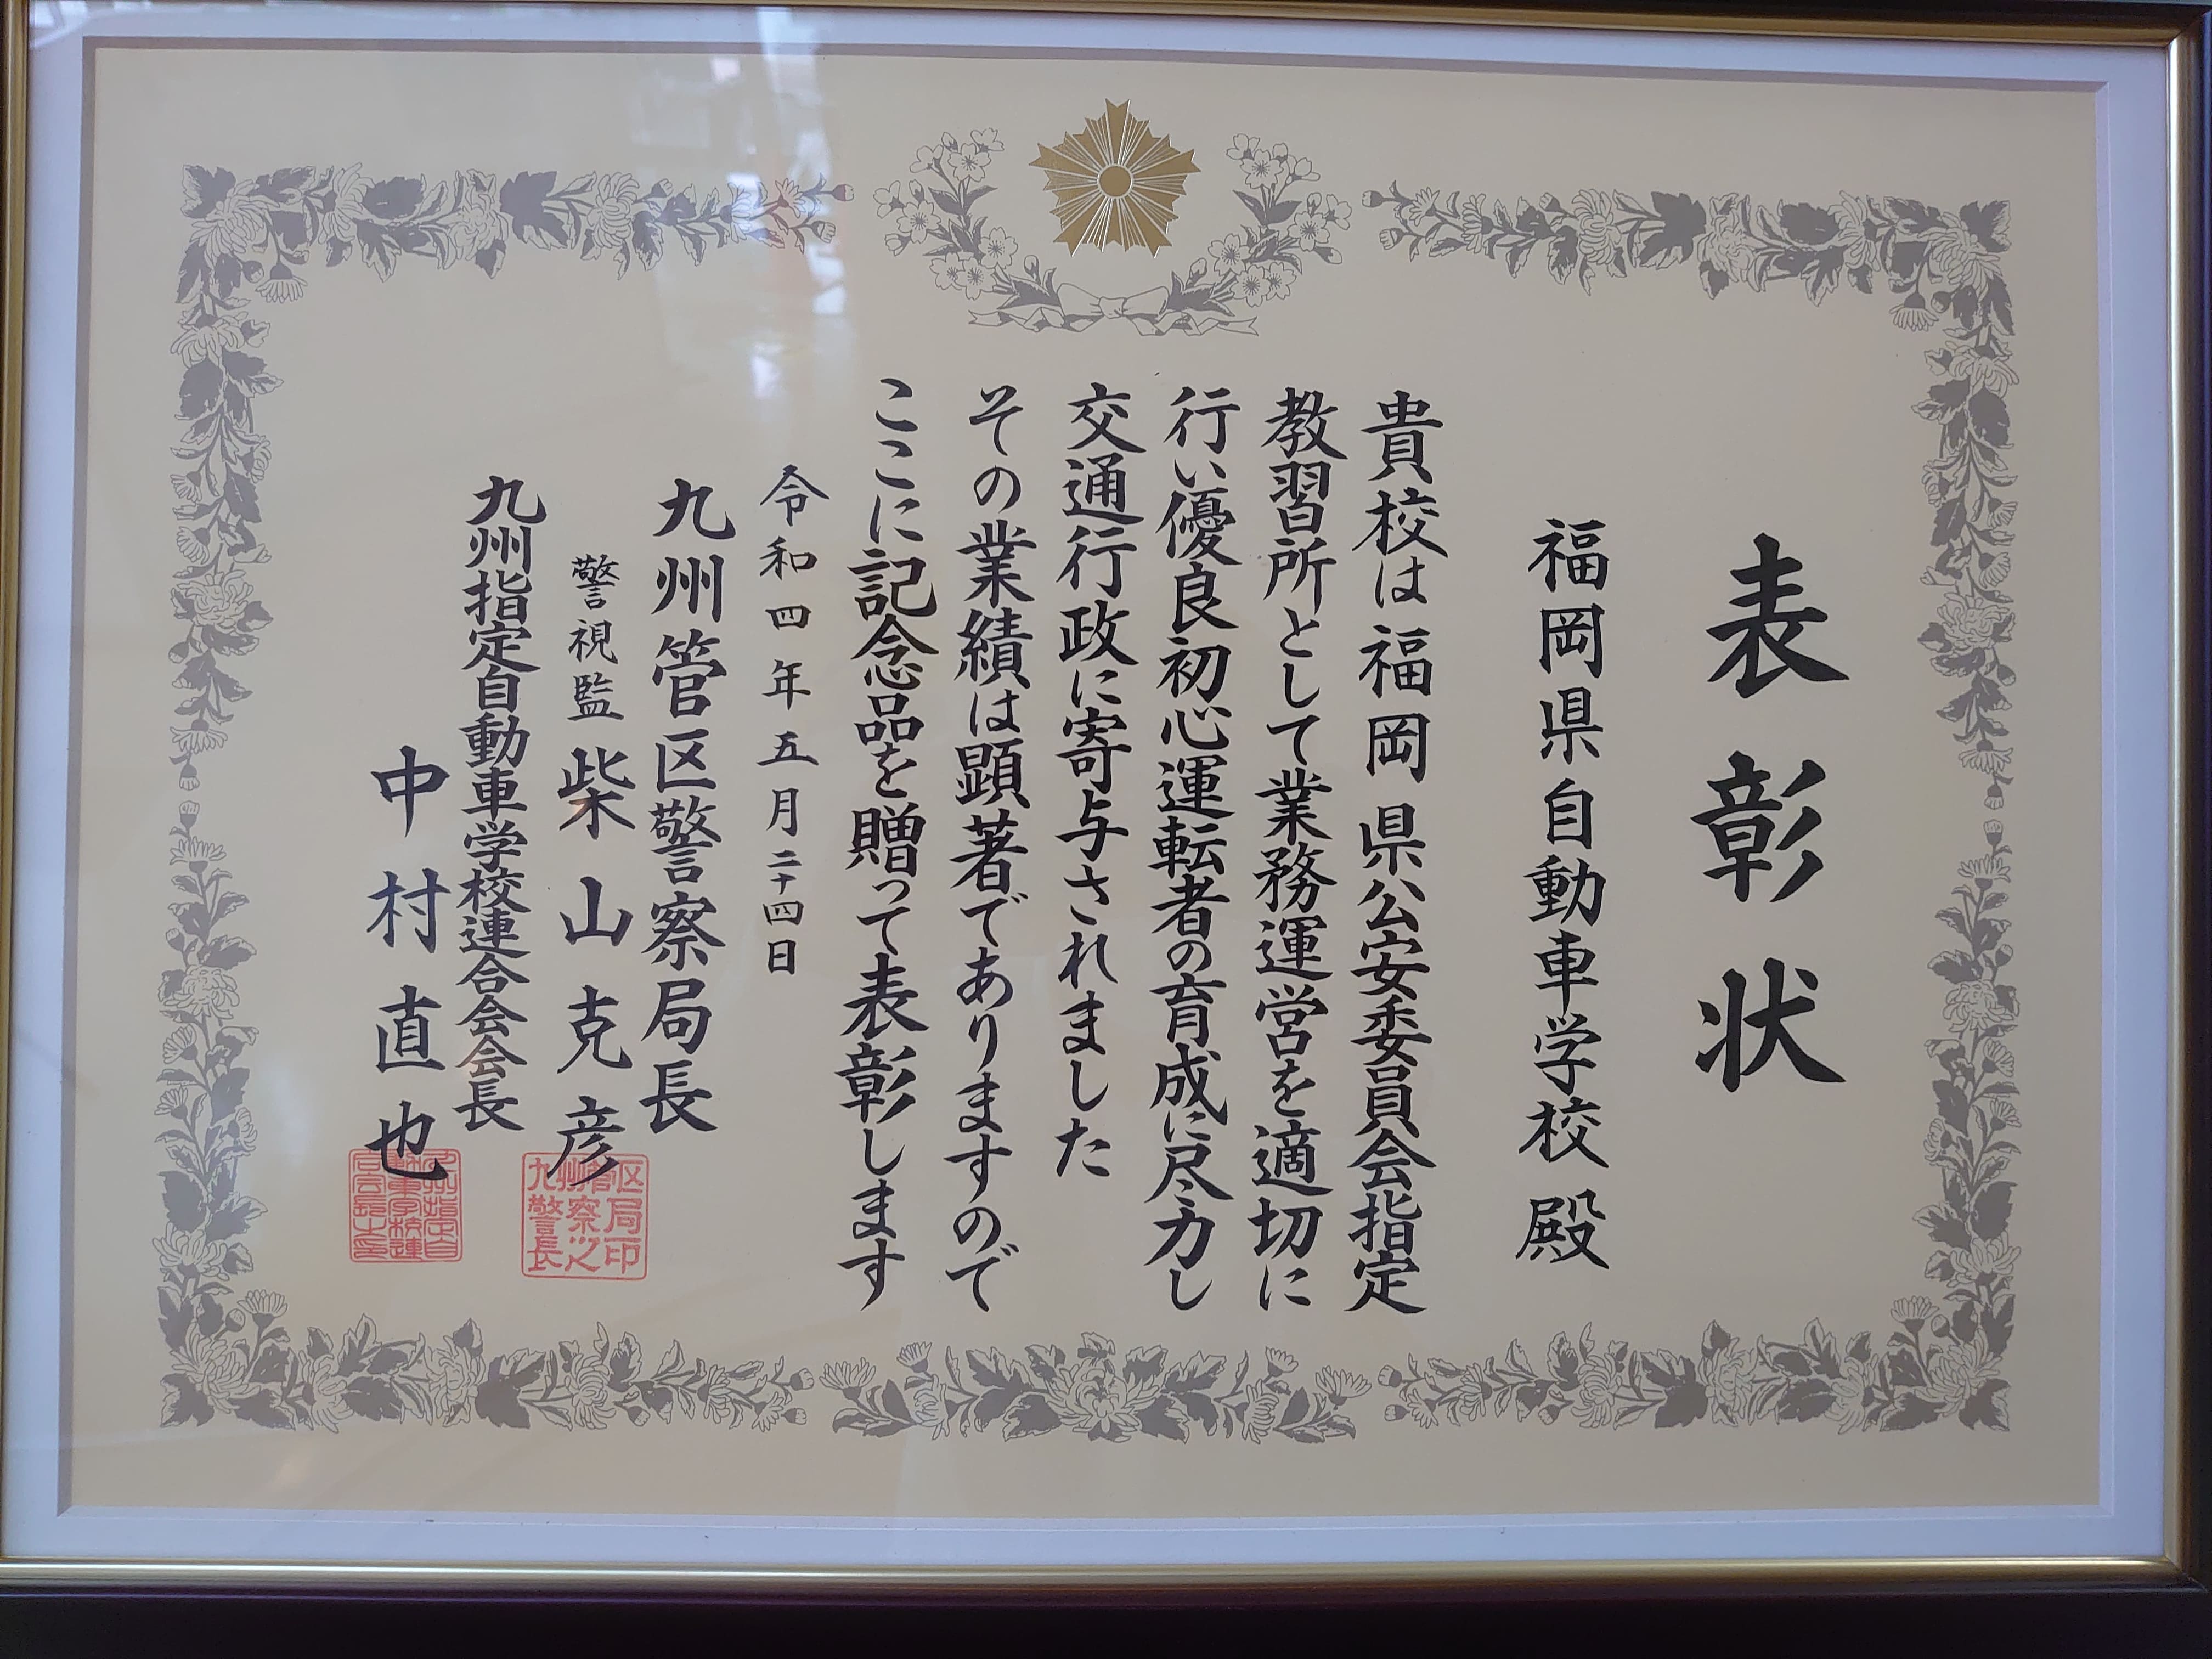 表彰状
福岡県自動車学校殿
貴校は福岡県公安委員会指定
教習所として業務運営を適切に
行い優良初心運転者の育成に尽力し
交通行政に寄与されました
その業績は顕著でありますので
ここに記念品を贈って表彰します
令和四年五月二十四日
九州管区警察局長
警視監 柴山克彦
九州指定自動車学校連合会会長
中村直也